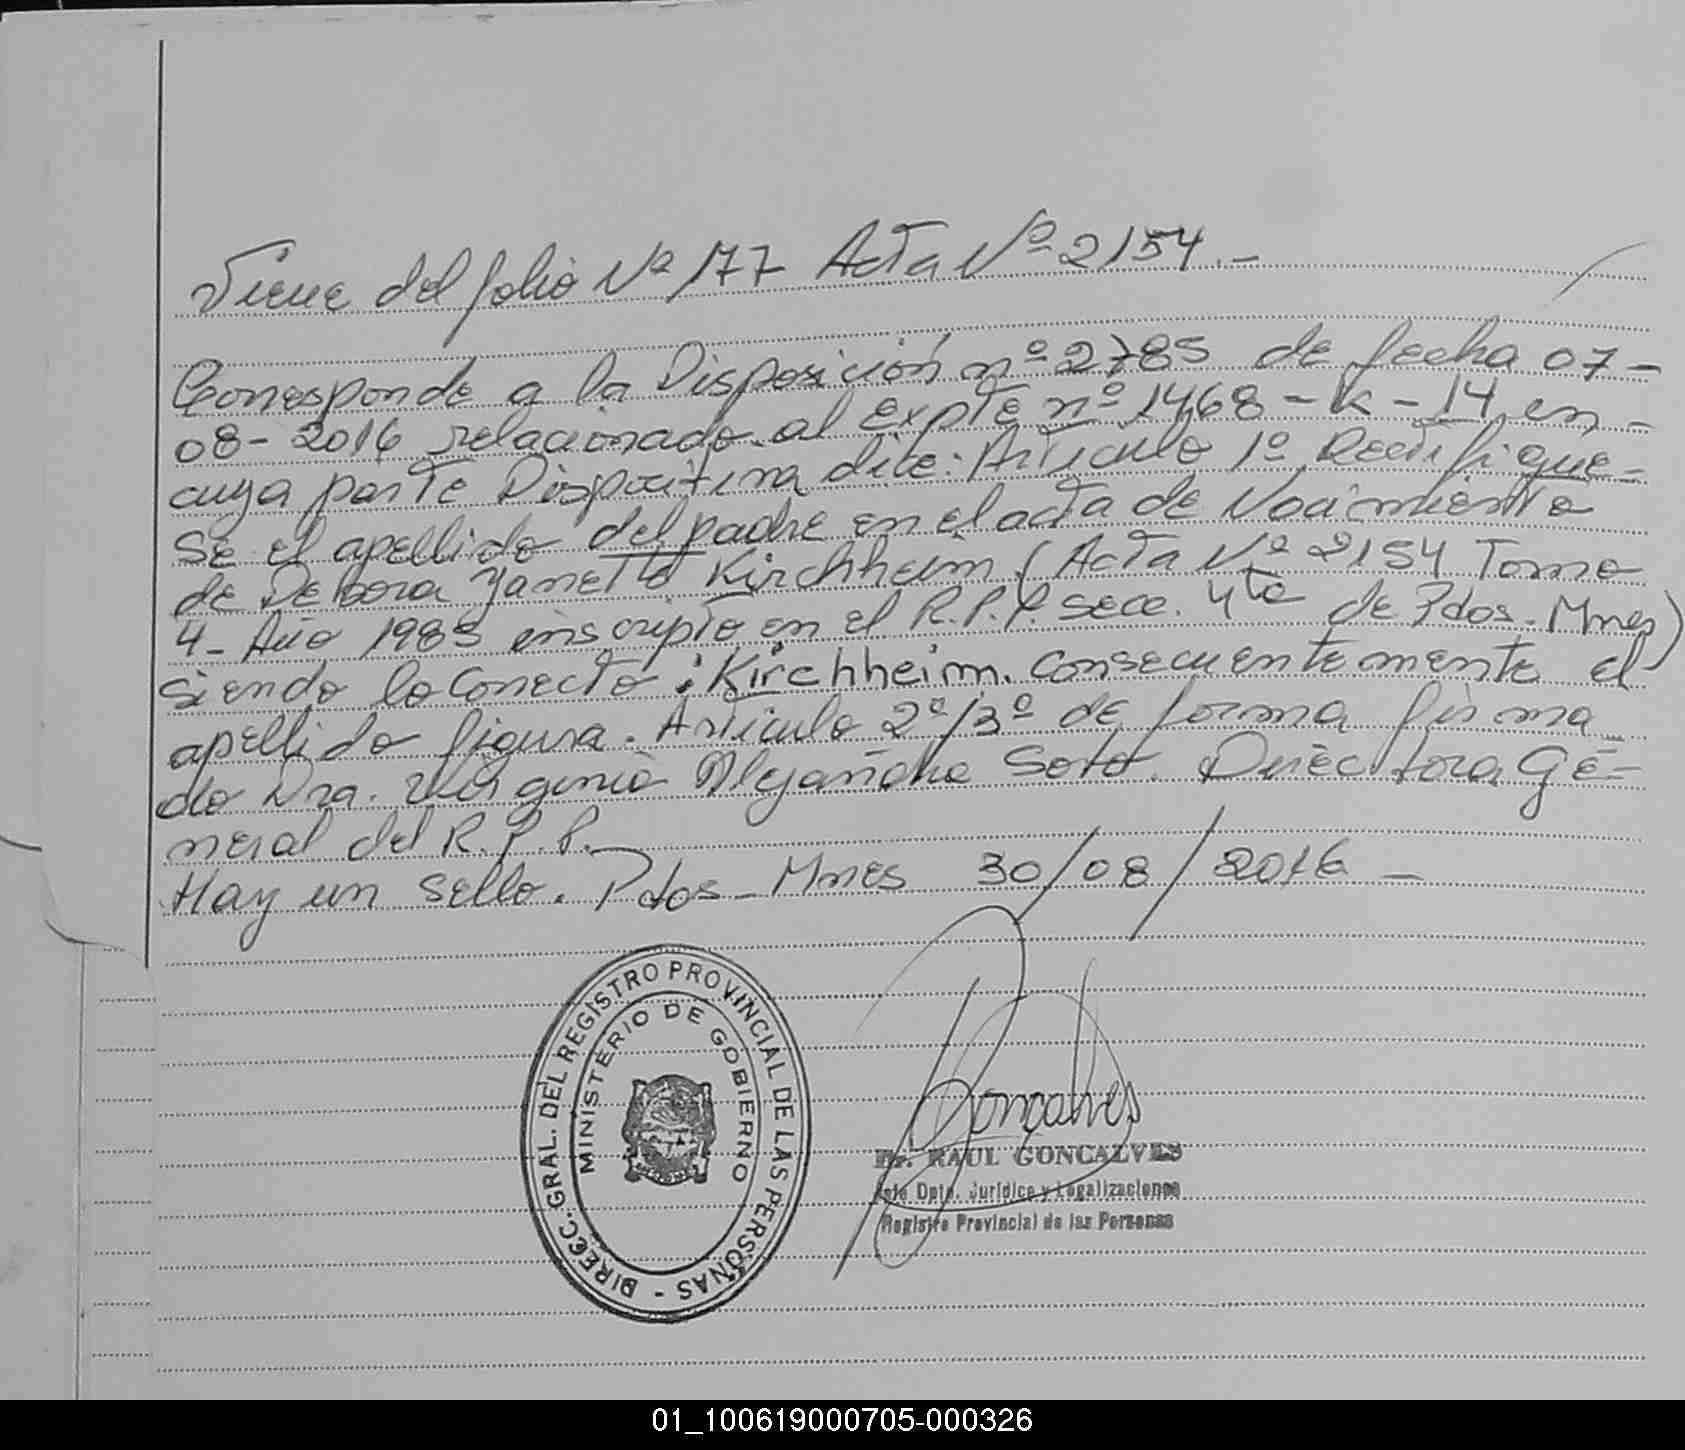 Viene del folio Nº 177 Acta Nº 2154.-
Corresponde a la Disposición nº 2785 de fecha 07-
08-2016 relacionado al Expte nº 1468-K-14 en
cuya parte Dispositiva dice: Articulo 1º Rectifique-
se el apellido del padre en el acta de Nacimiento
de Debora Janette Kirchheim (Acta Nº 2154 Tomo
4- Año 1985 inscripto en el R.P.P. secc. 4ta de Pdos. Mnes)
siendo lo Correcto: Kirchheim. Consecuentemente el
apellido figura. Articulo 2º/3º de forma firma_
do Dra. Virginia Alejandra Soto. Directora Ge-
neral del R.P.P.
Hay un sello. Pdos-Mnes 30/08/2016 -
DIRECC. GRAL. DEL REGISTRO PROVINCIAL DE LAS PERSONAS -
MINISTERIO DE GOBIERNO
Gonçalves
Dr. RAUL GONCALVES
Jefe Dpto. Jurídico y Legalizaciones
Registro Provincial de las Personas
01_100619000705-000326